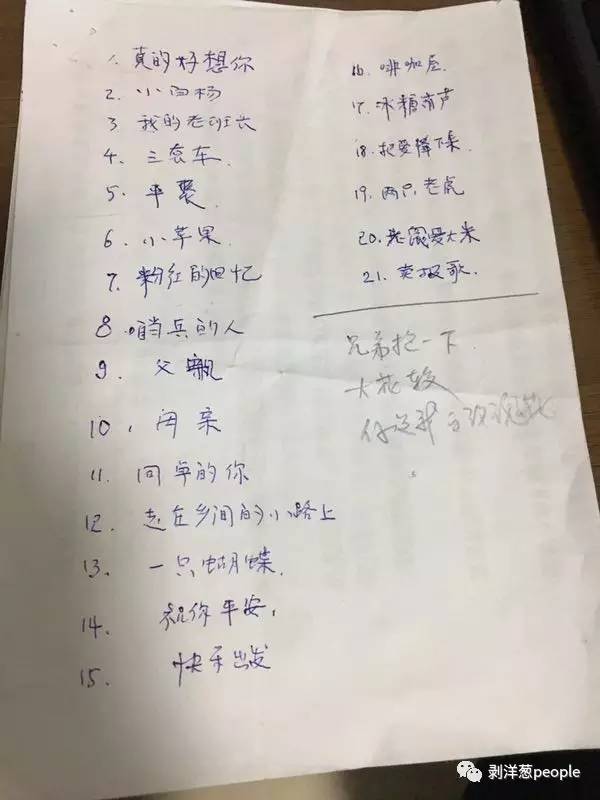 1. 真的好想你
2. 小白杨
3 我的老班长
4. 三套车.
5. 平
6. 小苹果.
7. 粉红的回忆
8. 哨兵的人
9. 父
10. 亲
11. 同卓的你
12. 走在乡间的小路上
13. 一只蝴蝶.
14. 祝你平安,
15. 快乐出发
16. 啡咖屋.
17. 冰糖有声
18. 把爱降下来
19. 两只老虎
20. 老鼠爱大米
21. 卖报歌.
兄弟抱一下.
大花
你送我 玫瑰花
剥洋葱people